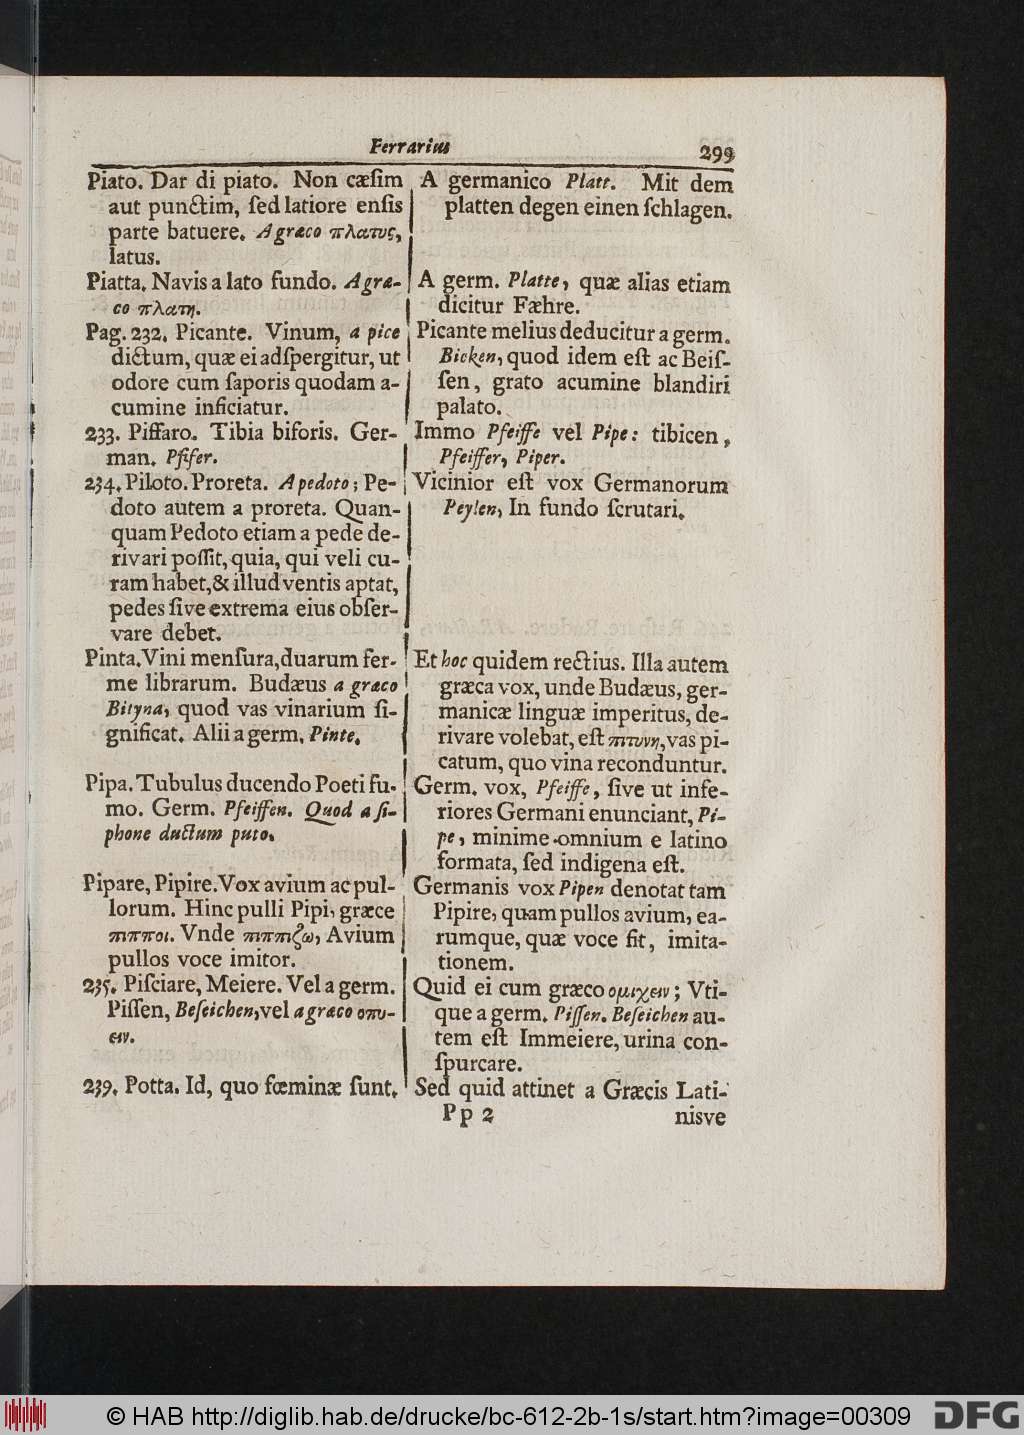 Ferrarius
299
Piato. Dar di piato. Non cæſim
aut punctim, ſed latiore enſis
parte batuere. A græco πλατυς,
latus.
Piatta. Navis a lato fundo. A græ-
co πλατη.
Pag. 232. Picante. Vinum, a pice
dictum, quæ ei adſpergitur, ut
odore cum ſaporis quodam a-
cumine inficiatur.
233. Piffaro. Tibia biforis. Ger-
man. Pfifer.
234. Piloto. Proreta. A pedoto; Pe-
doto autem a proreta. Quan-
quam Pedoto etiam a pede de-
rivari poſſit, quia, qui veli cu-
ram habet, & illud ventis aptat,
pedes ſive extrema eius obſer-
vare debet.
Pinta. Vini menſura, duarum fer-
me librarum. Budæus a græco
Bityna, quod vas vinarium ſi-
gnificat. Alii a germ. Pinte.
Pipa. Tubulus ducendo Poeti fu-
mo. Germ. Pfeiffen. Quod a ſi-
phone ductum puto.
Pipare, Pipire. Vox avium ac pul-
lorum. Hinc pulli Pipi, græce
πιπποι. Vnde πιππιζω, Avium
pullos voce imitor.
235. Piſciare, Meiere. Vel a germ.
Piſſen, Beſeichen, vel a græco οπυ-
ειν.
239. Potta. Id, quo fœminæ ſunt.
A germanico Platt. Mit dem
platten degen einen ſchlagen.
A germ. Platte, quæ alias etiam
dicitur Fæhre.
Picante melius deducitur a germ.
Bicken, quod idem eſt ac Beiſ-
ſen, grato acumine blandiri
palato.
Immo Pfeiffe vel Pipe: tibicen,
Pfeiffer, Piper.
Vicinior eſt vox Germanorum
Peylen, In fundo ſcrutari.
Et hoc quidem rectius. Illa autem
græca vox, unde Budæus, ger-
manicæ linguæ imperitus, de-
rivare volebat, eſt πιτυνη, vas pi-
catum, quo vina reconduntur.
Germ. vox, Pfeiffe, ſive ut infe-
riores Germani enunciant, Pi-
pe, minime omnium e latino
formata, ſed indigena eſt.
Germanis vox Pipen denotat tam
Pipire, quam pullos avium, ea-
rumque, quæ voce fit, imita-
tionem.
Quid ei cum græco ομιχειν; Vti-
que a germ. Piſſen. Beſeichen au-
tem eſt Immeiere, urina con-
ſpurcare.
Sed quid attinet a Græcis Lati-
Pp 2
nisve
© HAB http://diglib.hab.de/drucke/bc-612-2b-1s/start.htm?image=00309
DFG